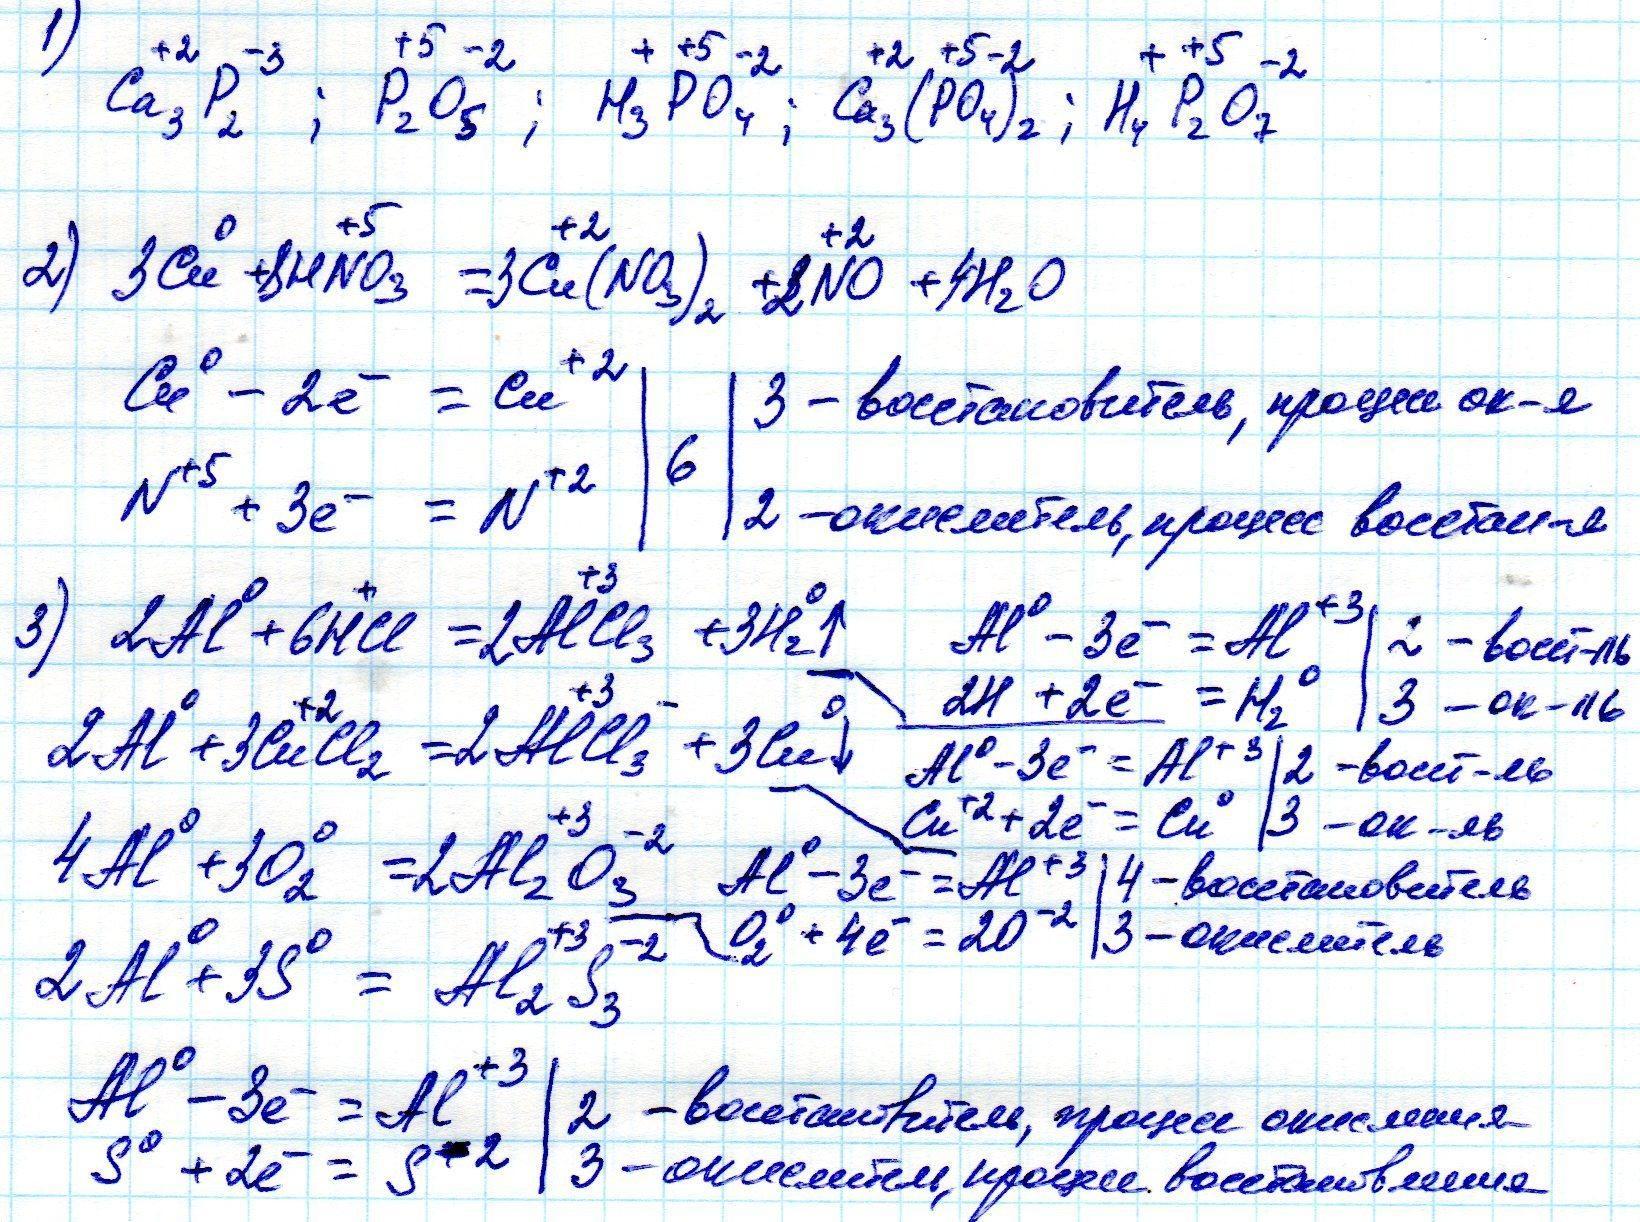 1) Ca₃⁺²P₂⁻³ ; P₂⁺⁵O₅⁻² ; H₃⁺P⁺⁵O₄⁻² ; Ca₃⁺²(P⁺⁵O₄⁻²)₂ ; H₄⁺P₂⁺⁵O₇⁻²
2) 3Cu⁰ + 8HN⁺⁵O₃ = 3Cu⁺²(NO₃)₂ + 2N⁺²O + 4H₂O
Cu⁰ - 2e⁻ = Cu⁺² | 6 | 3 - восстановитель, процесс ок-я
N⁺⁵ + 3e⁻ = N⁺² | | 2 - окислитель, процесс восстан-я
3) 2Al⁰ + 6H⁺Cl = 2Al⁺³Cl₃ + 3H₂⁰↑ Al⁰ - 3e⁻ = Al⁺³ | 2 - восст-ль
2H + 2e⁻ = H₂⁰ | 3 - ок-ль
2Al⁰ + 3Cu⁺²Cl₂ = 2Al⁺³Cl₃⁻ + 3Cu⁰↓ Al⁰ - 3e⁻ = Al⁺³ | 2 - восст-ль
Cu⁺² + 2e⁻ = Cu⁰ | 3 - ок-ль
4Al⁰ + 3O₂⁰ = 2Al₂⁺³O₃⁻² Al⁰ - 3e⁻ = Al⁺³ | 4 - восстановитель
O₂⁰ + 4e⁻ = 2O⁻² | 3 - окислитель
2Al⁰ + 3S⁰ = Al₂⁺³S₃⁻²
Al⁰ - 3e⁻ = Al⁺³ | 2 - восстановитель, процесс окисления
S⁰ + 2e⁻ = S⁻² | 3 - окислитель, процесс восстановления